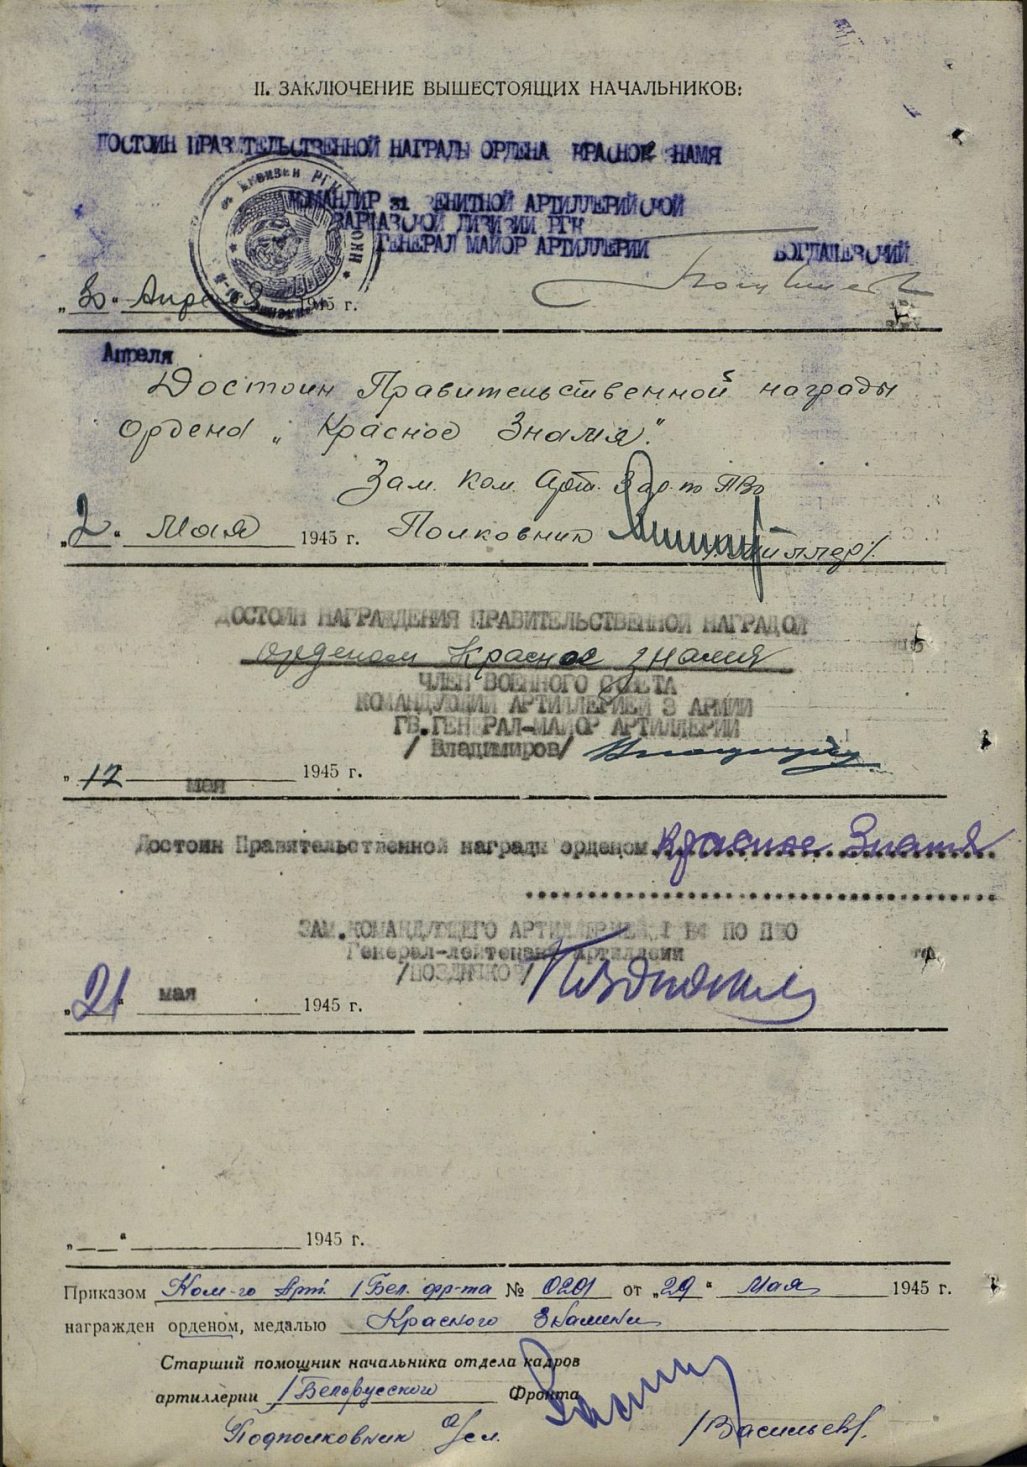 II. ЗАКЛЮЧЕНИЕ ВЫШЕСТОЯЩИХ НАЧАЛЬНИКОВ:
ДОСТОИН ПРАВИТЕЛЬСТВЕННОЙ НАГРАДЫ ОРДЕНА КРАСНОЕ ЗНАМЯ
КОМАНДИР 31 ЗЕНИТНОЙ АРТИЛЛЕРИЙСКОЙ
ВАРШАВСКОЙ ДИВИЗИИ РГК
ГЕНЕРАЛ МАЙОР АРТИЛЛЕРИИ
„30“ Апреля 1945 г.
Апреля
Достоин Правительственной награды
ордена „Красное Знамя“.
Зам. Ком. Арт. 3 ар. по ПВО
„2“ Мая 1945 г. Полковник /Миллер/.
ДОСТОИН НАГРАЖДЕНИЯ ПРАВИТЕЛЬСТВЕННОЙ НАГРАДОЙ
орденом Красное знамя
ЧЛЕН ВОЕННОГО СОВЕТА
КОМАНДУЮЩИЙ АРТИЛЛЕРИЕЙ 3 АРМИИ
ГВ.ГЕНЕРАЛ-МАЙОР АРТИЛЛЕРИИ
/ Владимиров/
„12 мая 1945 г.
Достоин Правительственной награды орденом Красное Знамя
ЗАМ.КОМАНДУЮЩЕГО АРТИЛЛЕРИЕЙ 1 БФ ПО ПВО
Генерал-лейтенант артиллерии
/ПОЗДНЯКОВ/
„21“ мая 1945 г.
„ “ 1945 г.
Приказом Ком-го Арт. 1 Бел. фр-та № 0201 от „29“ Мая 1945 г.
награжден орденом, медалью Красного Знамени
Старший помощник начальника отдела кадров
артиллерии 1 Белорусского Фронта
Подполковник а/сл. /Васильев/.